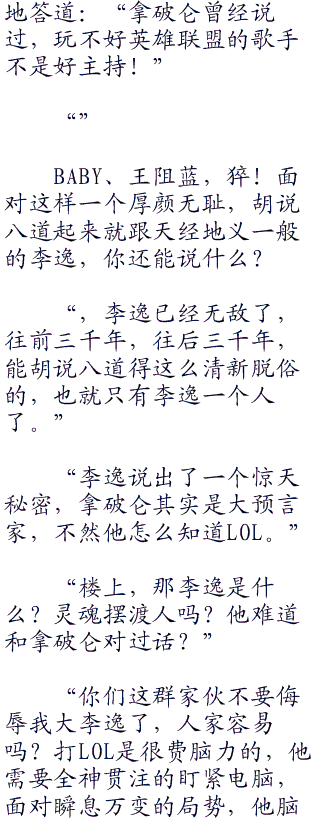 地答道：“拿破仑曾经说
过，玩不好英雄联盟的歌手
不是好主持！”
“”
BABY、王阻蓝，猝！面
对这样一个厚颜无耻，胡说
八道起来就跟天经地义一般
的李逸，你还能说什么？
“，李逸已经无敌了，
往前三千年，往后三千年，
能胡说八道得这么清新脱俗
的，也就只有李逸一个人
了。”
“李逸说出了一个惊天
秘密，拿破仑其实是大预言
家，不然他怎么知道LOL。”
“楼上，那李逸是什
么？灵魂摆渡人吗？他难道
和拿破仑对过话？”
“你们这群家伙不要侮
辱我大李逸了，人家容易
吗？打LOL是很费脑力的，他
需要全神贯注的盯紧电脑，
面对瞬息万变的局势，他脑